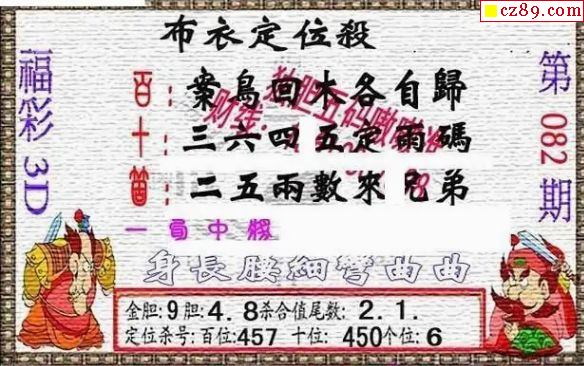 cz89.com
布衣定位殺
福彩3D
第082期
百：案鳥回木各自歸
十：三六四五定兩碼
二五兩數來兄弟
身長腰細彎曲曲
金胆:9胆:4.8杀合值尾数:2.1.
定位杀号:百位:457 十位:450个位:6